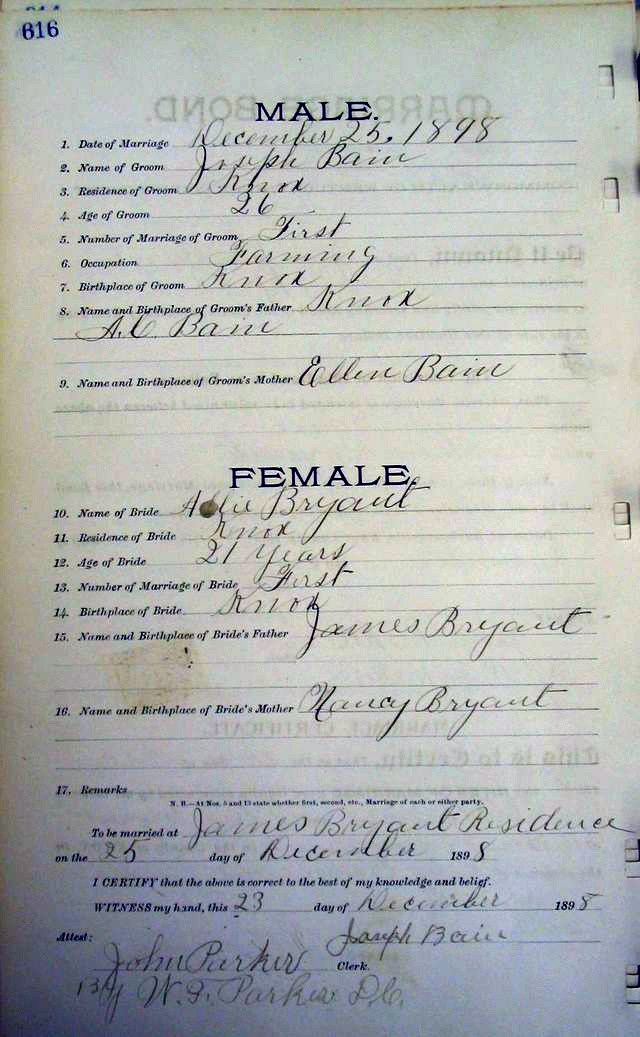 616
MALE.
1. Date of Marriage December 25, 1898
2. Name of Groom Joseph Bain
3. Residence of Groom Knox
4. Age of Groom 26
5. Number of Marriage of Groom, First
6. Occupation Farming
7. Birthplace of Groom Knox
8. Name and Birthplace of Groom's Father Knox
A.C. Bain
9. Name and Birthplace of Groom's Mother Ellen Bain
FEMALE.
10. Name of Bride Bryant
11. Residence of Bride Knox
12. Age of Bride 21 Years
13. Number of Marriage of Bride First
14. Birthplace of Bride Knox
15. Name and Birthplace of Bride's Father James Bryant
16. Name and Birthplace of Bride's Mother Nancy Bryant
17. Remarks
N. B.—At Nos. 5 and 13 state whether first, second, etc., Marriage of each or either party.
To be married at James Bryant Residence
on the 25 day of December 1898
I CERTIFY that the above is correct to the best of my knowledge and belief.
WITNESS my hand, this 23 day of December 1898
Attest: Joseph Bain
John Parker Clerk.
By W. F. Parker D.C.